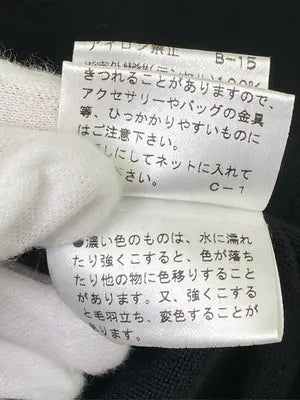 アイロン禁止 B-15
100%
きつれることがありますので、
アクセサリーやバッグの金具
等、ひっかかりやすいものに
はご注意下さい。
しにしてネットに入れて
さい。 C-1
●濃い色のものは、水に濡れ
たり強くこすると、色が落ち
たり他の物に色移りすること
があります。又、強くこする
と毛羽立ち、変色することが
あります。